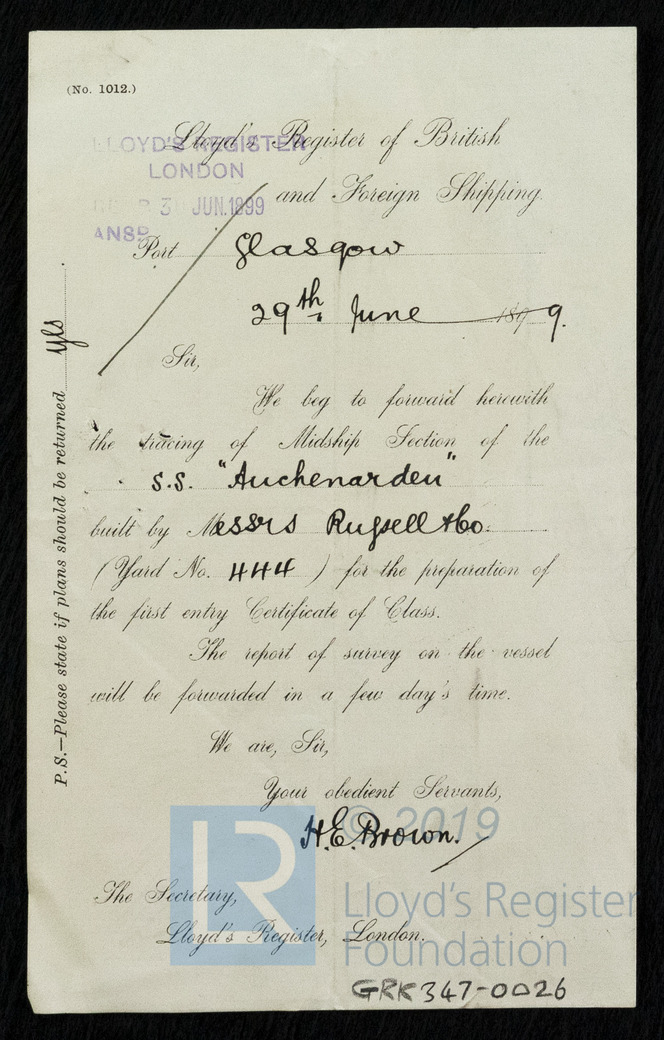 (No. 1012.)
Lloyd's Register of British
LLOYD'S REGISTER
LONDON
and Foreign Shipping.
3 JUN. 1899
ANSD
Port Glasgow
29th June 1899.
Sir,
We beg to forward herewith
the tracing of Midship Section of the
S.S. "Auchenarden"
built by Messrs Russell & Co.
(Yard No. 444) for the preparation of
the first entry Certificate of Class.
The report of survey on the vessel
will be forwarded in a few day's time.
We are, Sir,
Your obedient Servants,
H.E. Brown.
The Secretary,
Lloyd's Register, London.
P.S.—Please state if plans should be returned yes
© 2019
LR
Lloyd's Register
Foundation
GRK347-0026